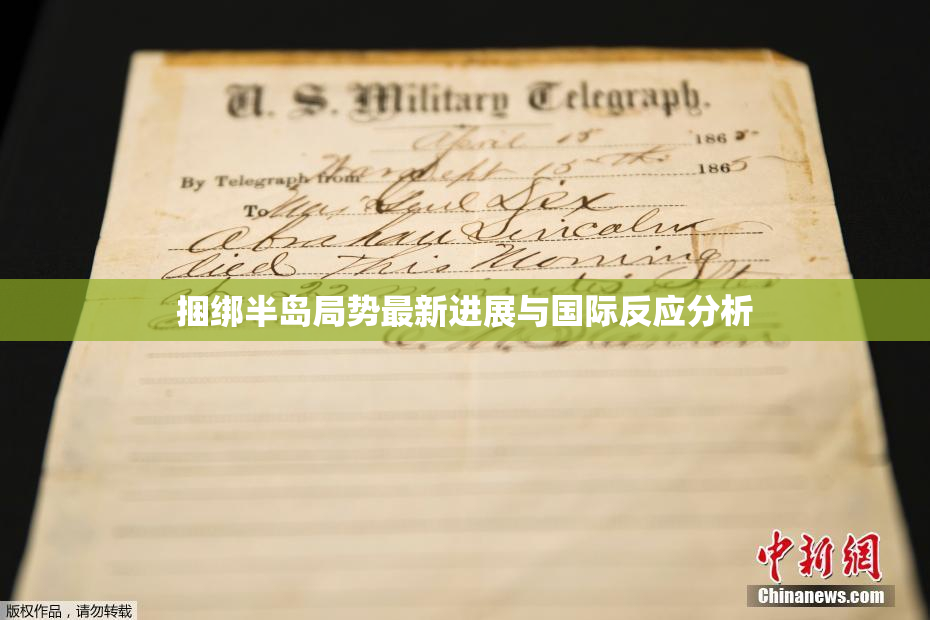 U. S. Military Telegraph.
April 15 1865.
By Telegraph from War Dept 15th 1865
To Maj Genl Dix
Abraham Lincoln
died This Morning
at 22 minutes after
捆绑半岛局势最新进展与国际反应分析
E. M. Stanton
中新网
Chinanews.com
版权作品，请勿转载